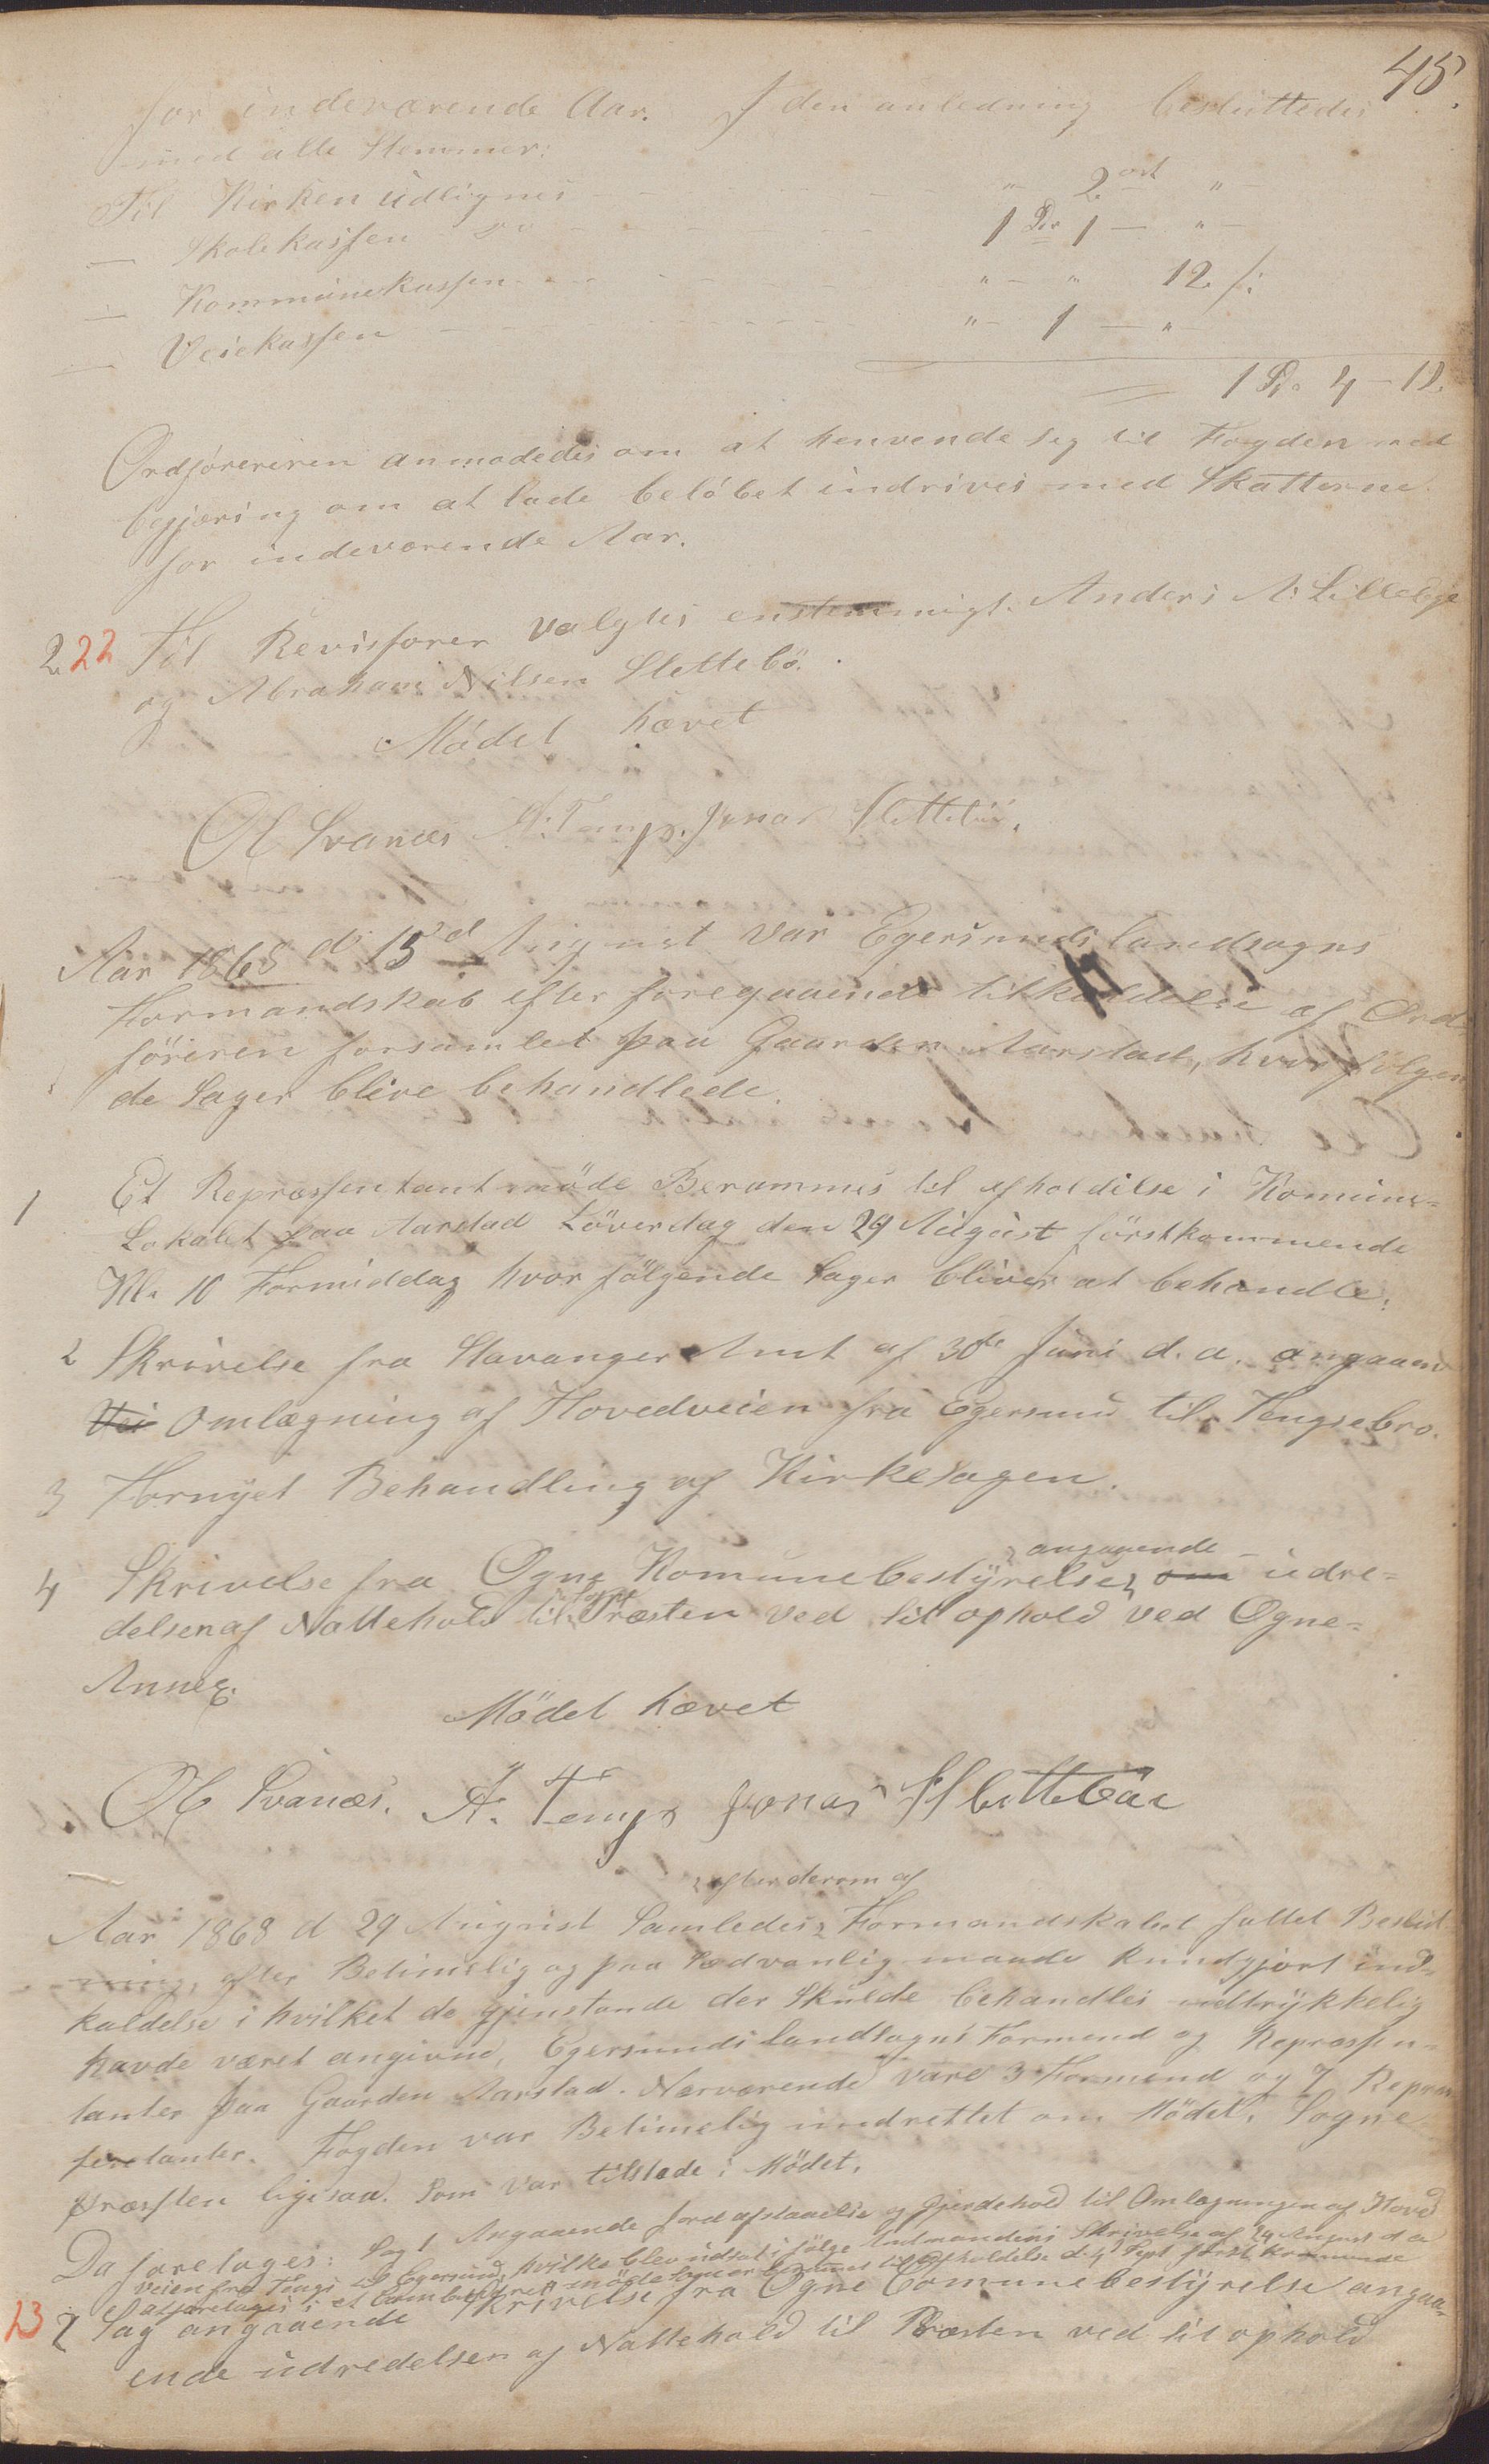 45.
for indeværende Aar. I den anledning besluttedes
med alle Stemmer:
Til Kirken udlignes " 2 ort "
— Skolekassen do 1 Sp 1 — " —
— Kommunekassen " — " 12 s:
— Veiekassen " — 1 — " —
1 Sp. 4 — 12.
Ordføreren anmodedes om at henvende seg til Fogden med
begjæring om at lade beløbet indrives med Skatterne
for indeværende Aar.
2 22 Til Revisforer valgtes enstemmigt. Anders A:
og Abraham Nilsen Slettebö.
Mødet hævet
Ol Svanæs A: Tengs. Jonas Slettebö.
Aar 1868 d 15d August var Egersunds landsogns
Formandskab efter foregaaende tilkaldelse af Ord-
föreren forsamlet paa Gaarden Aarstad, hvor fölgen
de Sager blive behandlede.
1 Et Repræssentantmöde Berammes til afholdilse i Komune-
Lokalet paa Aarstad Löverdag den 29 August förstkommende
Kl. 10 Formiddag hvor fölgende Sager bliver at behandle:
2 Skrivelse fra Stavanger Amt af 30te Juni d. a. angaaend
Vei Omlægning af Hovedveien fra Egersund til Tengsebro.
3 Fornyet Behandling af Kirkesagen.
angagende
4 Skrivelse fra Ogne Komunebestyrelse om udre-
delsen af Nattehold til Sogne Præsten ved til ophold ved Ogne-
Annex.
Mödet hævet
Ol Svanæs. A. Tengs Jonas Slettebøe
efter derom af
Aar 1868 d 29 August Samledes Formandskabet fattet Beslut
ning, efter Betimelig og paa Sædvanlig maade kundgjort ind-
kaldelse i hvilket de gjenstande der Skulde behandles udtrykkelig
havde været angivne, Egersunds Landsogns Formend og Repræssen-
tanter paa Gaarden Aarstad. Nærværende vare 3 Formend og 7 Repræ
sentanter. Fogden var Betimelig undrettet om Mödet, Sogne
præsten ligesaa. Som var tilstede i Mödet.
Da foretoges: Sag 1 Angaaende Jordafstaaelse og Gjerdehold til Omlægningen af Hoved
veien fra Tengs til Egersund, hvilke blev udsat i fölge Amtmandens Skrivelse af 24 August d a
atforetages i et möde som er bestemt til Afholdelse d. 4 Sept först kommende
13 2 Sag angaaende Skrivelse fra Ogne Comunebestyrelse angaa-
ende udredelsen af Nattehold til Præsten ved til ophold